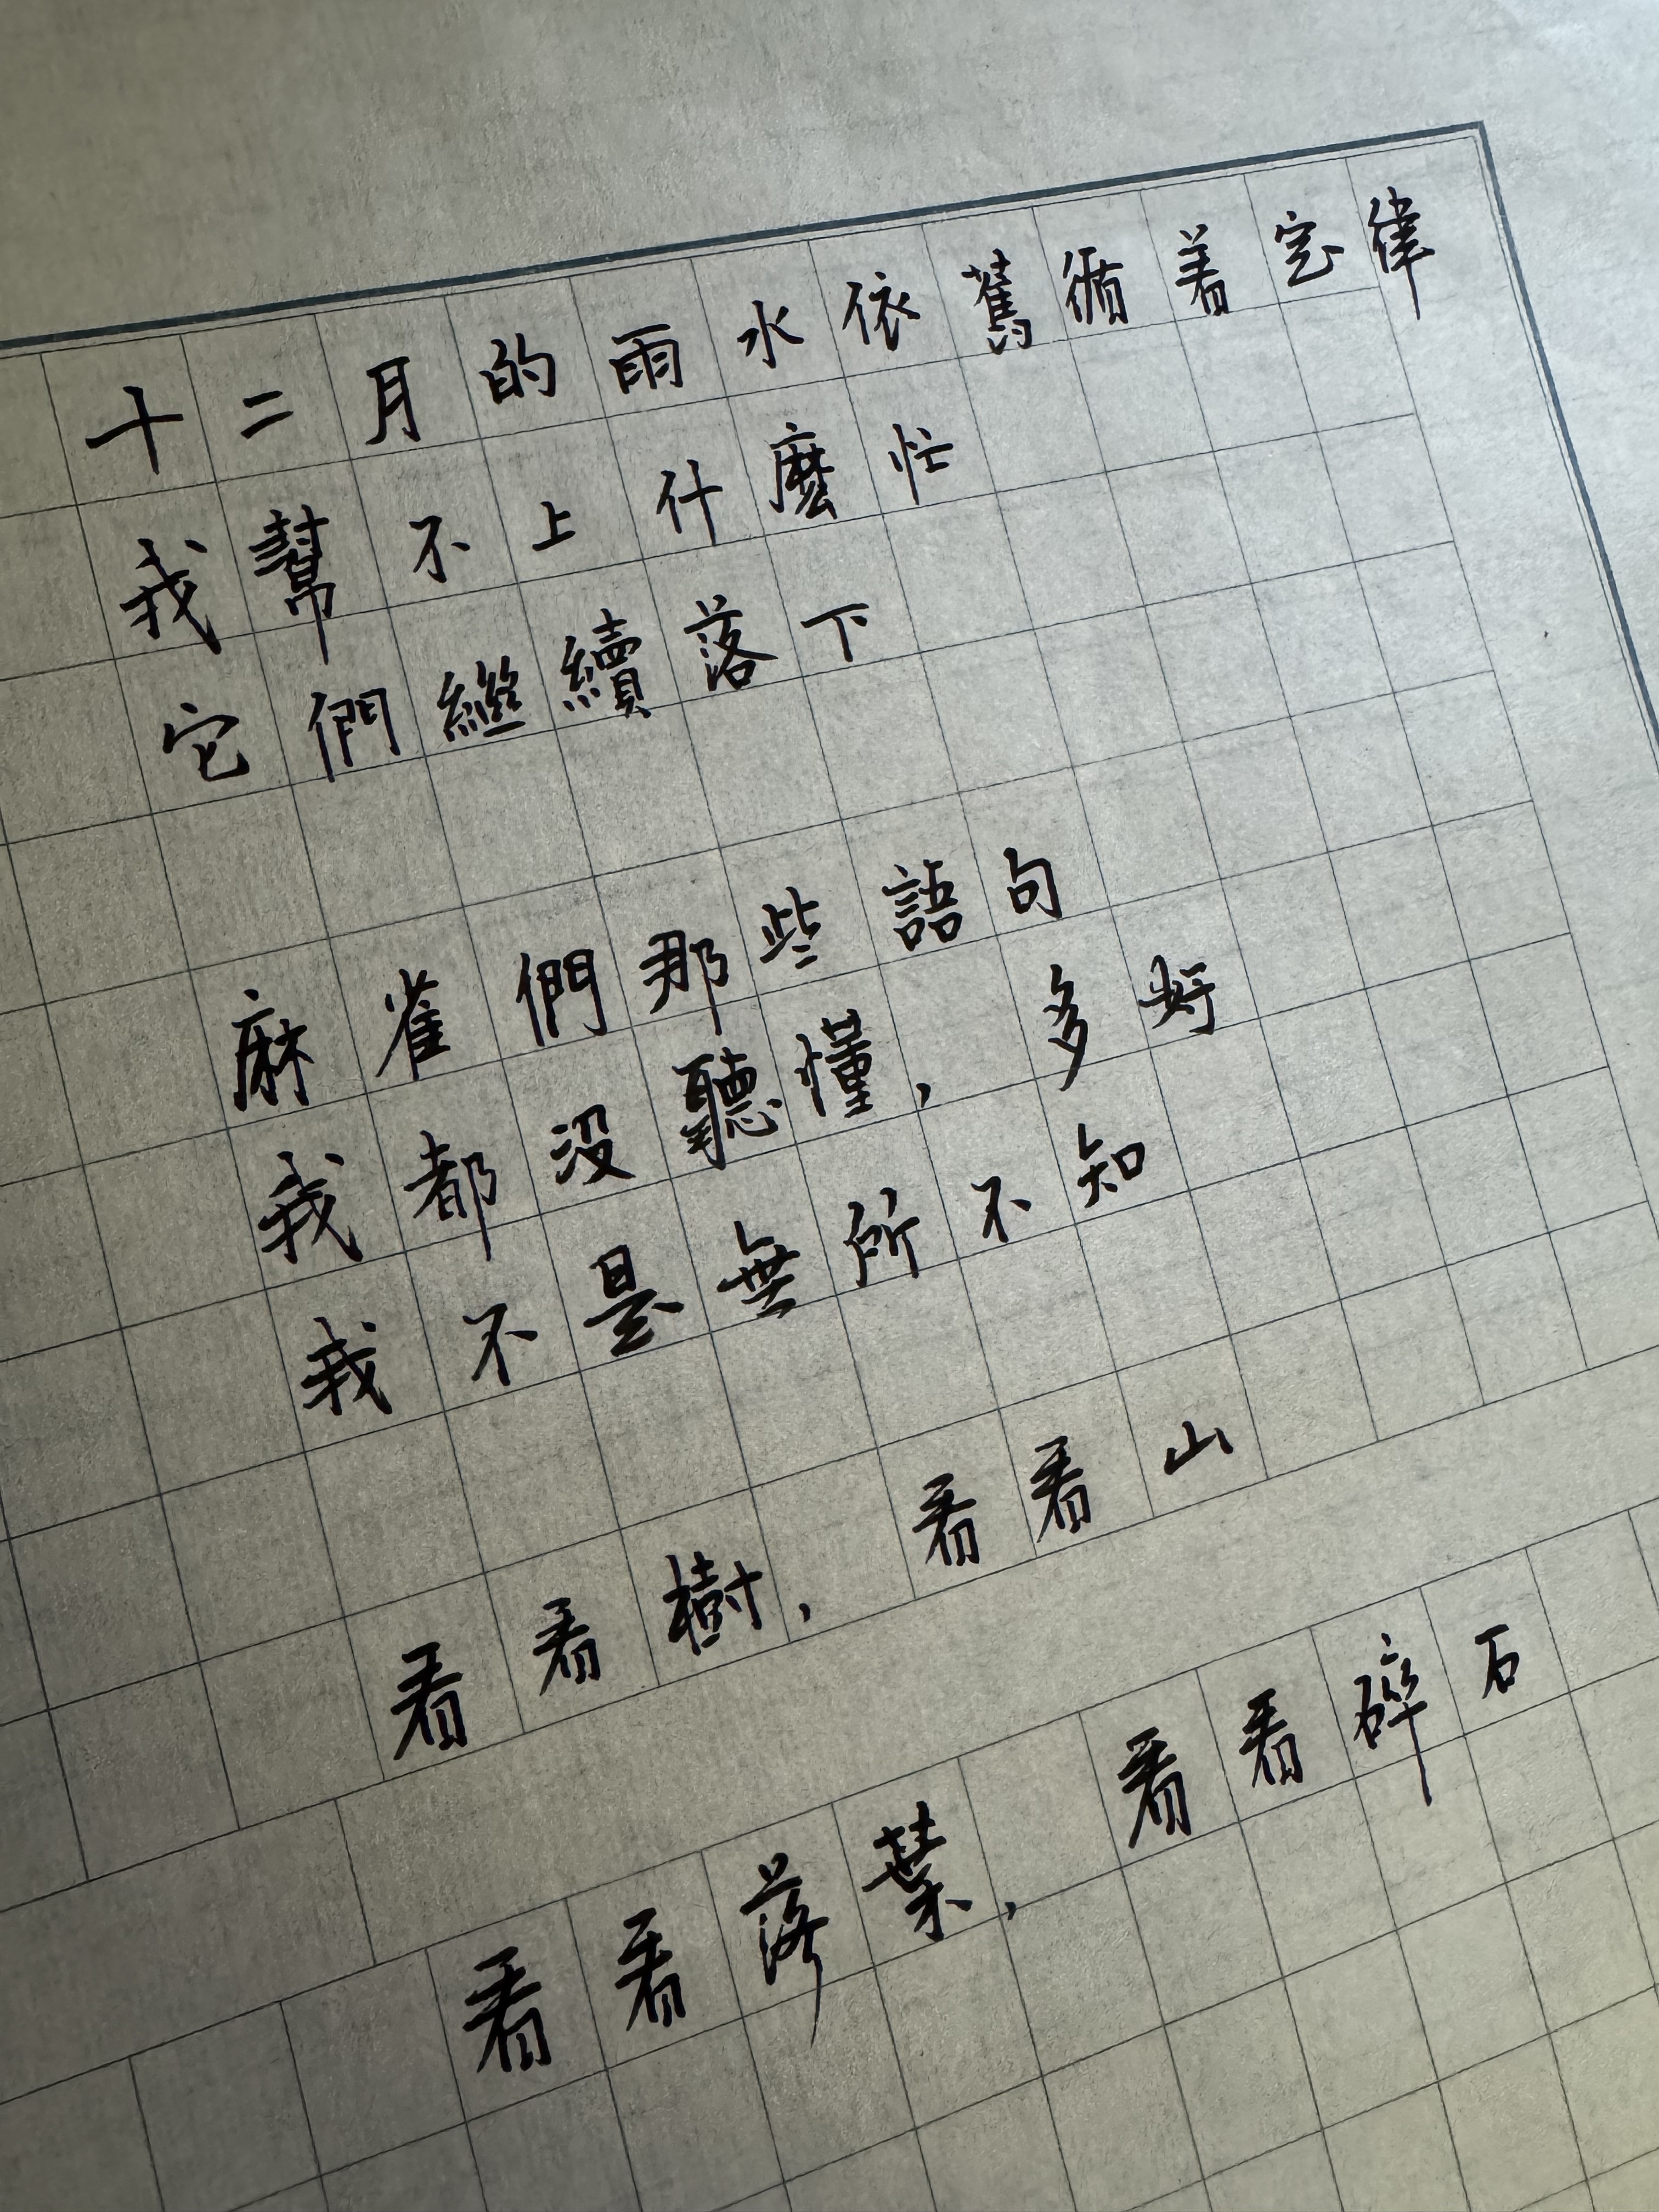 十二月的雨水依舊循着定律
我幫不上什麼忙
它們繼續落下
麻雀們那些語句
我都沒聽懂，多好
我不是無所不知
看看樹，看看山
看看落葉，看看碎石